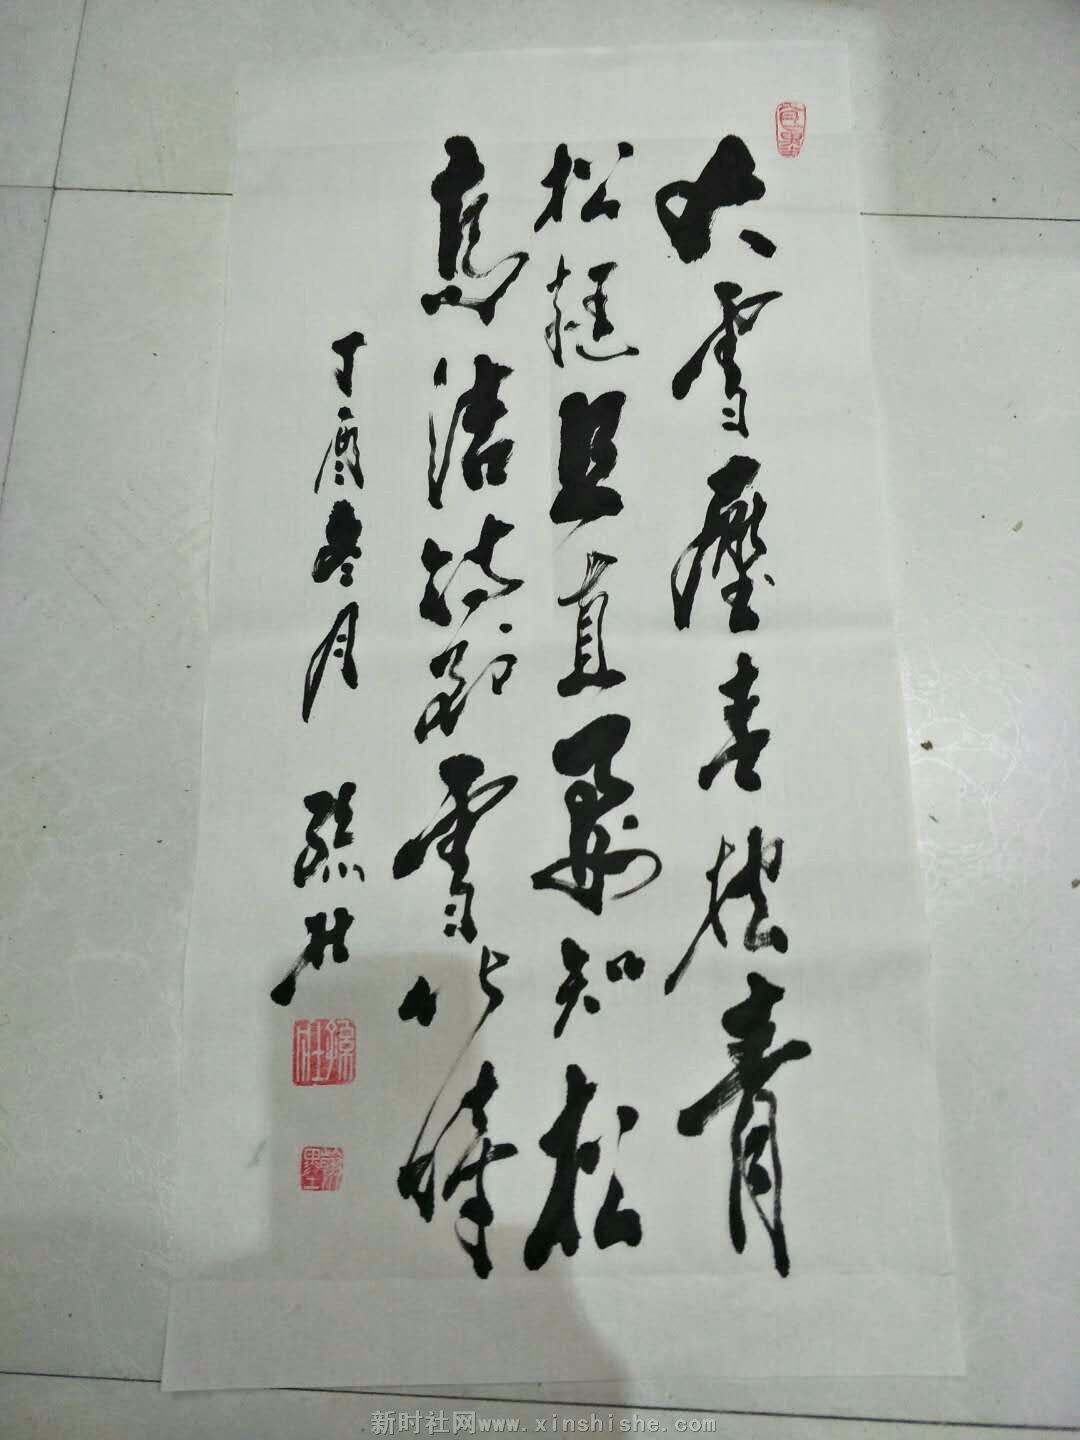 大雪壓青松青
松挺且直要知松
高洁待到雪化時
丁酉冬月 孫
新时社网www.xinshishe.com